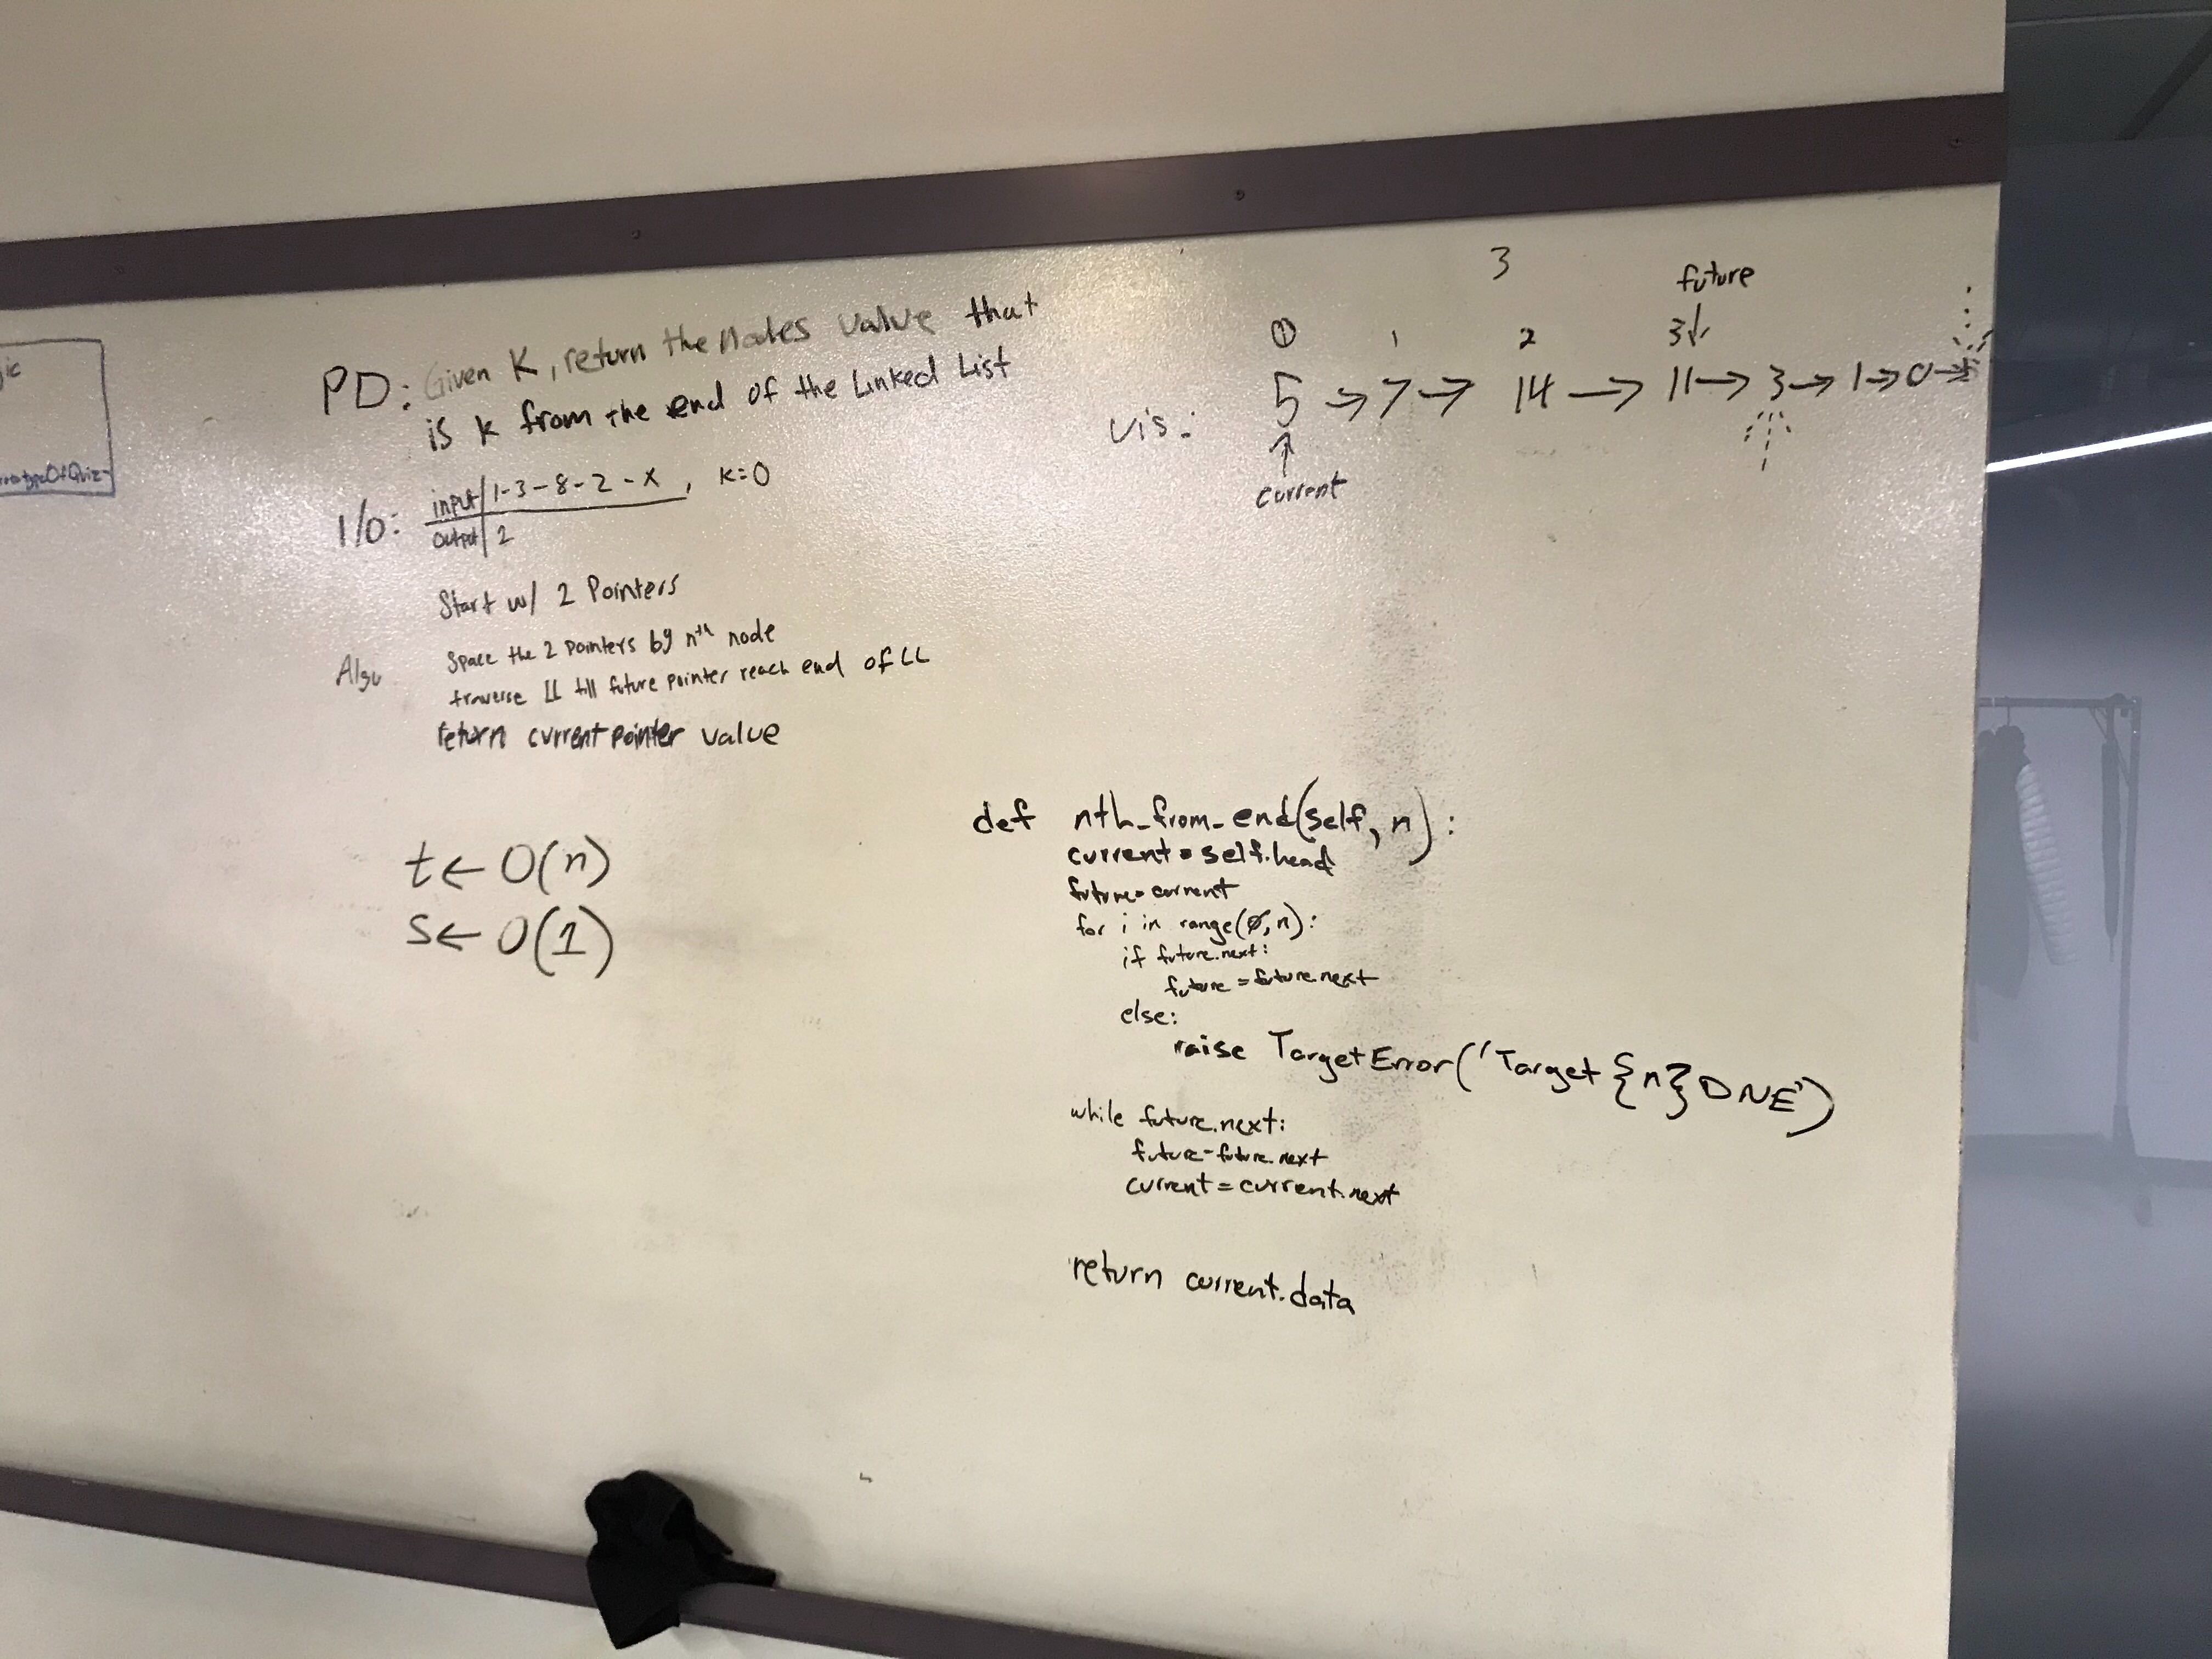 PD: Given K, return the nodes value that
is k from the end of the Linked List
I/O: input 1-3-8-2-X, k=0
output 2
Algo
Start w/ 2 Pointers
Space the 2 pointers by nth node
traverse LL till future pointer reach end of LL
return current pointer value
t ← O(n)
s ← O(1)
3
future
0 1 2 3 ↓
vis: 5 → 7 → 14 → 11 → 3 → 1 → 0 →
↑
current
def nth_from_end(self, n):
current = self.head
future = current
for i in range(0, n):
if future.next:
future = future.next
else:
raise TargetError('Target {n} DNE')
while future.next:
future = future.next
current = current.next
return current.data
ic